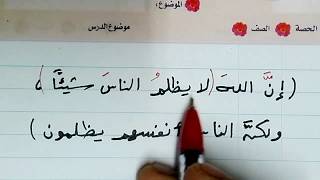 الحصة الصف الموضوع
موضوع الدرس
(إنَّ اللهَ (لا يظلمُ الناسَ شيئًا)
ولكنَّ الناس أنفسهم يظلمون)